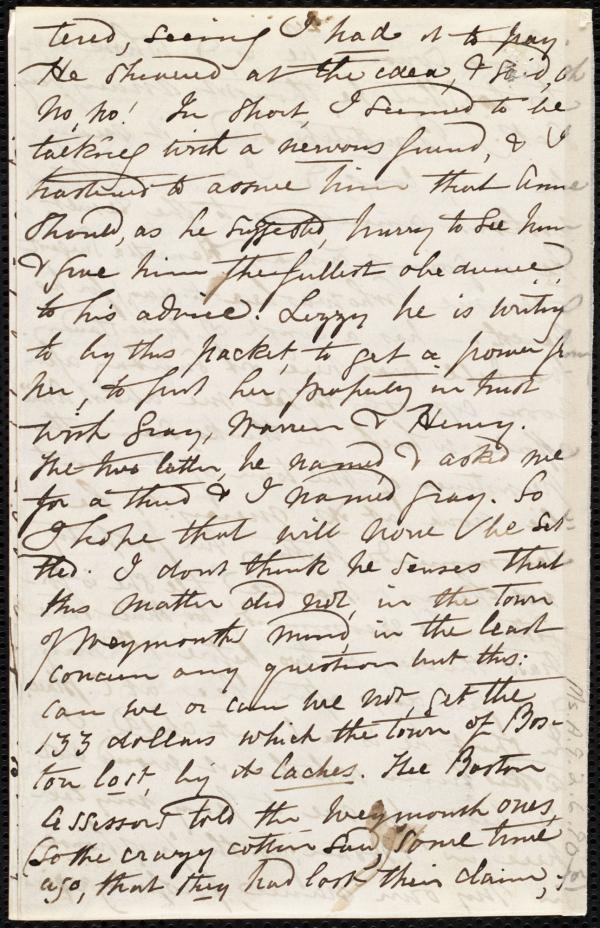 tered, seeing I had it to pay.
He shivered at the idea, & said, oh
No, no! In short, I seemed to be
talking with a nervous friend, & I
hastened to assure him that Anne
should, as he suggested, hurry to see him
& give him the fullest obedience
to his advice. Lizzy he is writing
to by this packet, to get a power fr
her, to put her property in trust
with Gray, Warren & Henry.
The two latter, he named & asked me
for a third & I named Gray. So
I hope that will now be set-
tled. I dont think he senses that
this matter did not, in the town
of Weymouth mind, in the least
concern any question but this:
can we or can we not, get the
133 dollars which the town of Bos-
ton lost, by its laches. The Boston
assessors told the Weymouth ones,
(so the crazy cotton said) some time
ago, that they had lost their claim,
Ms.A.9.2.6.90